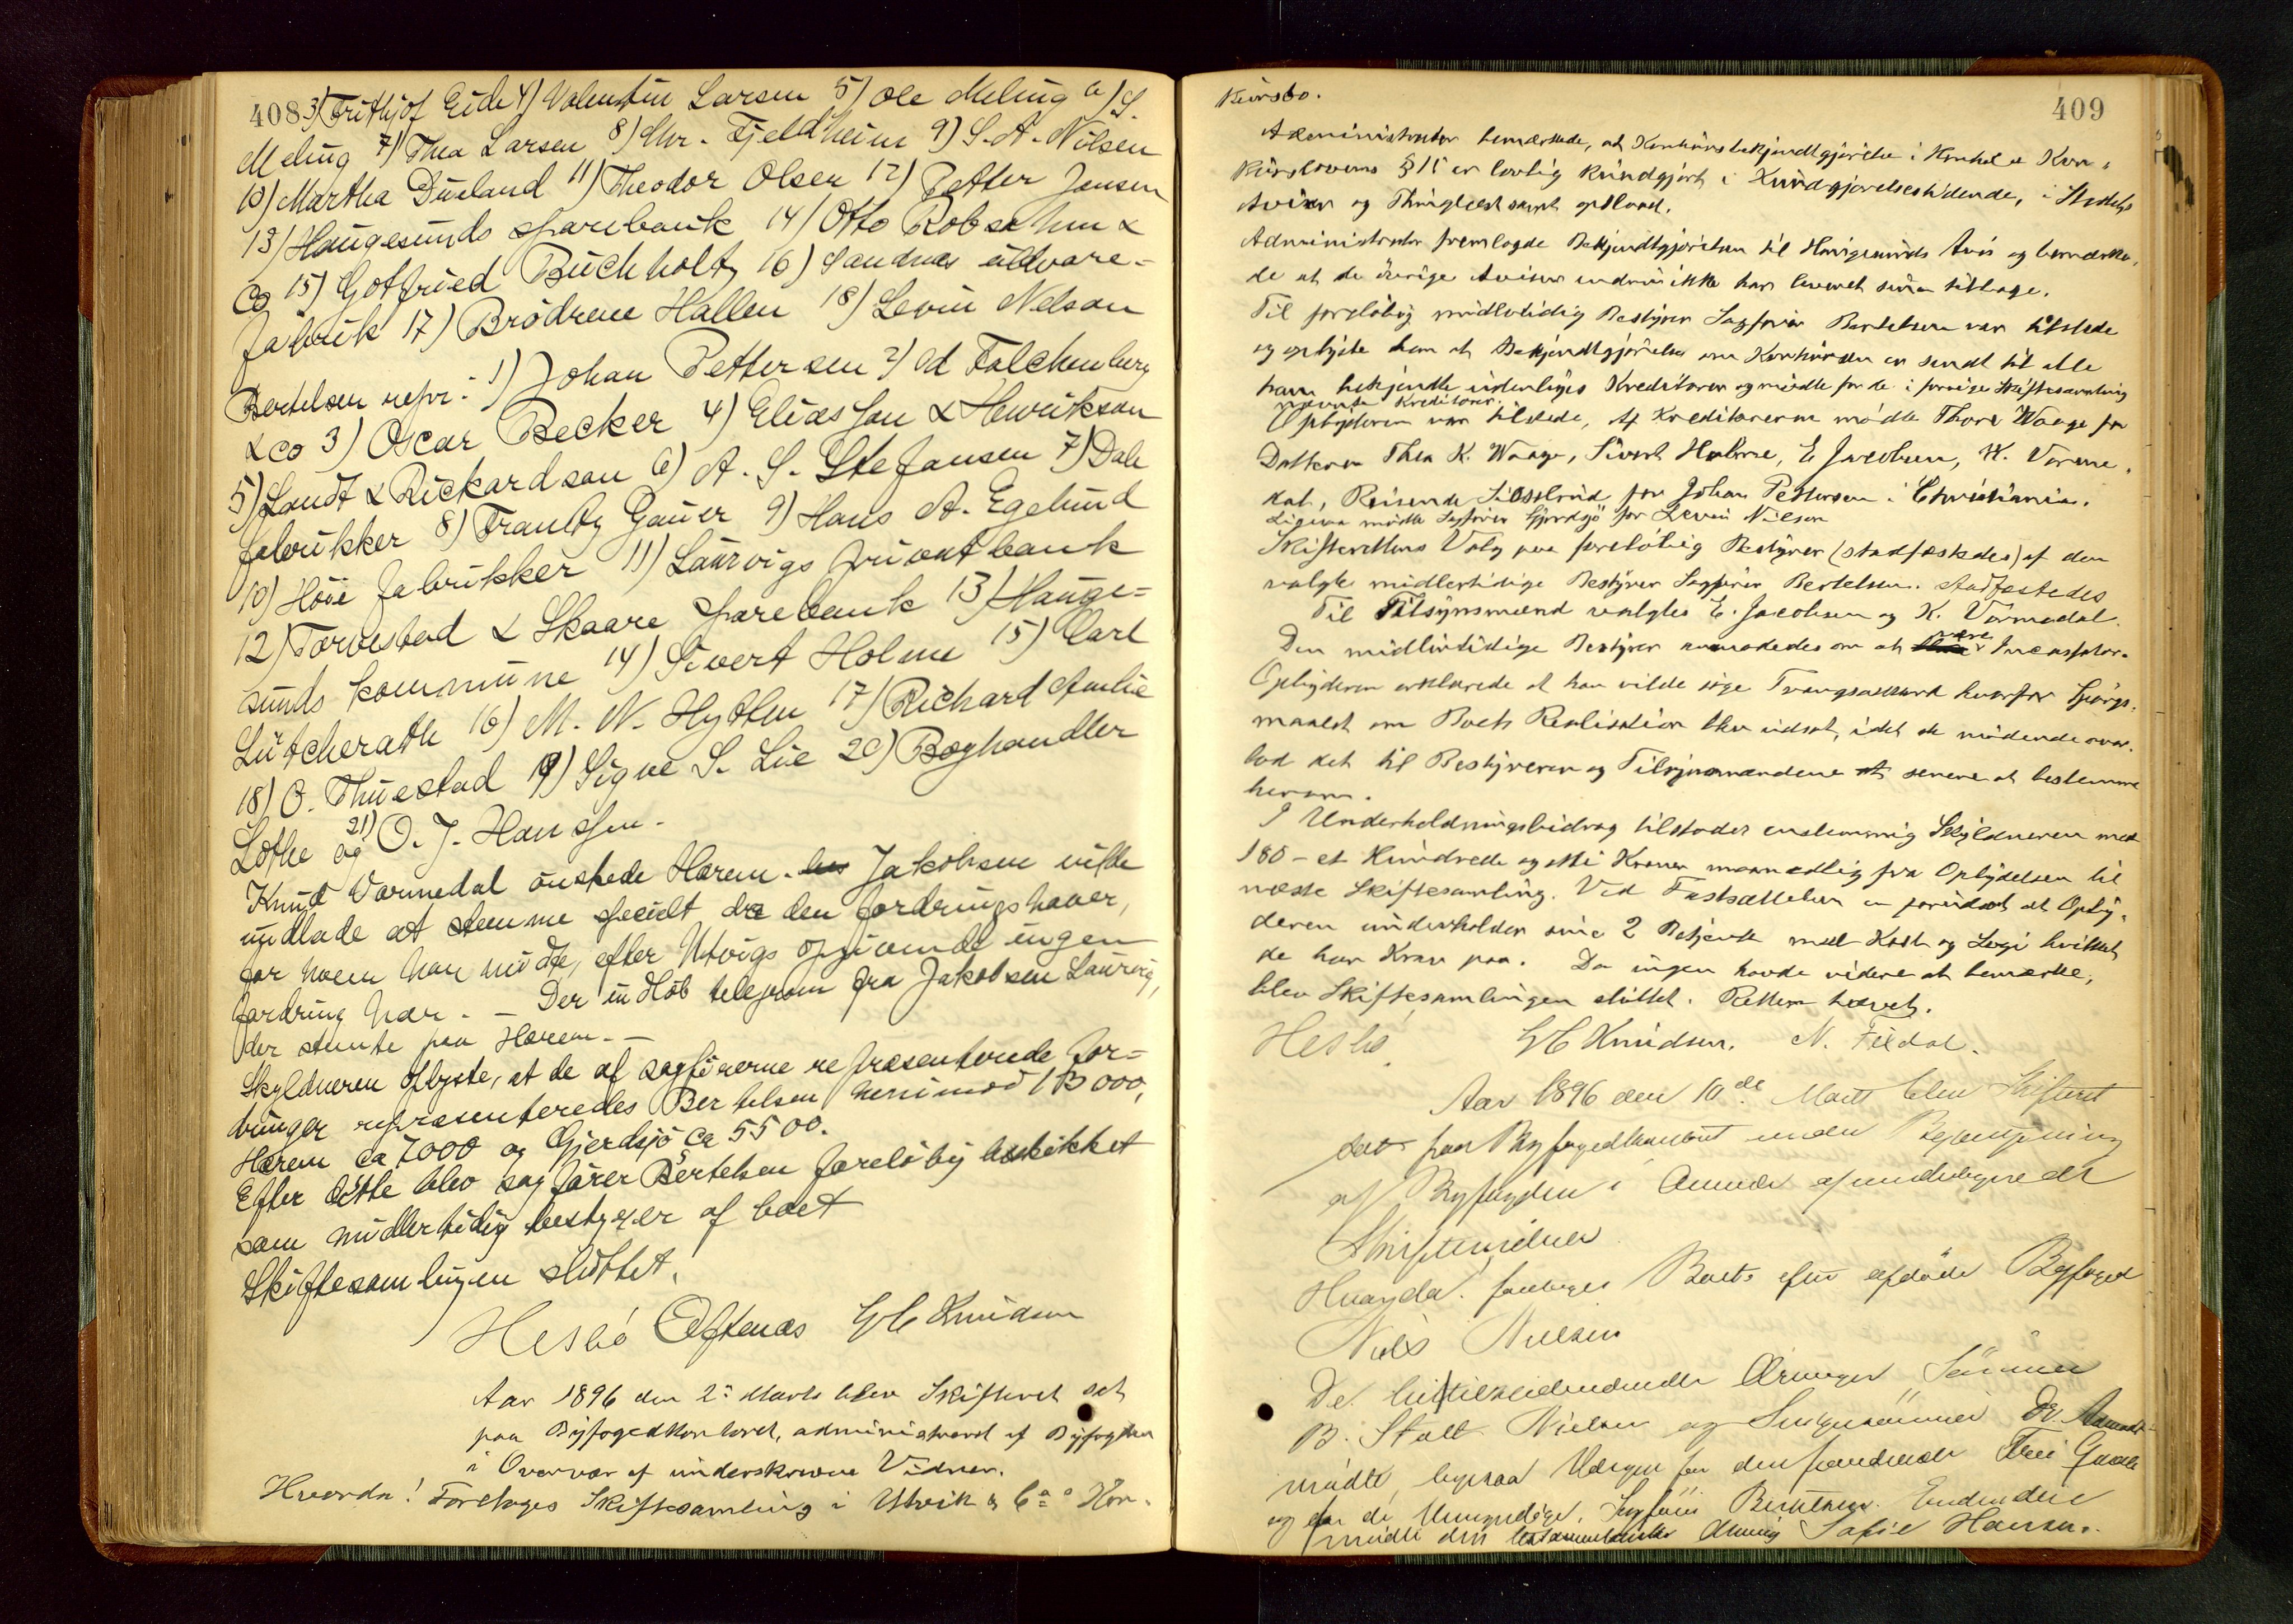 408 3) Frithjof Eide 4) Valentin Larsen 5) Ole Meling 6) S.
Meling 7) Thea Larsen 8) Chr. Fjeldheim 9) S. A. Nilsen
10) Martha Dueland 11) Theodor Olsen 12) Petter Jensen
13) Haugesunds sparebank 14) Otto Robsahm &
Co 15) Gotfried Buchholtz 16) Sandnes uldvare-
fabrik 17) Brödrene Hallen 18) Levin Nelson
Bertelsen repr: 1) Johan Pettersen 2) Ed Falchenburg
& co 3) Oscar Becker 4) Eliasson & Henrikson
5) Landt & Rickardson 6) A. S. Stefansen 7) Dale
fabrikker 8) Frantz Gauer 9) Hans A. Egelund
10) Höie fabrikker 11) Laurvigs privatbank
12) Torvestad & Skaare sparebank 13) Hauge-
sunds kommune 14) Sivert Holme 15) Carl
Lütcherath 16) M. N. Hytten 17) Richard Amlie
18) O. Thuestad 19) Signe S. Lie 20) Boghandler
Lothe og 21) O. J. Hansen.
Knud Vormedal önskede Harem. Jakobsen vilde
undlade at stemme specielt da den fordringshaver,
for hvem han mödte, efter Utvigs opgivende ingen
fordring har. - Der indlöb telegram fra Jakobsen Laurvig,
der stemte paa Harem. -
Skyldneren oplyste, at de af sagförerne repræsenterede for-
dringer repræsenteredes Bertelsen henimod 13000,
Harem ca 7000 og Gjerdsjö ca 5500.
Efter dette blev sagförer Bertelsen foreløbig beskikket
som midlertidig bestyrer af boet
Skiftesamlingen sluttet.
Hesbö Eftenæs G C Knudsen
Aar 1896 den 2. Marts blev Skifteret sat
paa Byfogedkontoret, administreret af Byfogden
i Overvær af underskrevne Vidner.
Hvorda! Foretoges Skiftesamling i Utvik & Co Kon-
409
kursbo.
Administrator bemærkede, at Konkursbekjendtgjørelse i Henhold til Kon-
kurslovens § 15 er lovlig kundgjort i Kundgjørelsestidende, i Stedets
Aviser og Thinglæst samt opslaaet.
Administrator fremlagde Bekjendtgjørelsen til Haugesunds Avis og bemærke-
de at de övrige Aviser endnu ikke har leveret sine tilbage.
Til foreløbig midlertidig Bestyrer Sagfører Bertelsen var tilstede
og oplyste han at Bekjendtgjørelse om Konkursen er sendt til alle
ham bekjendte udenbyes Kreditorer og mødte for de i forrige Skiftesamling
nævnte Kreditorer.
Opbyderen var tilstede. Af Kreditorerne mödte Thore Waage for
Datteren Thea K. Waage, Sivert Holme, E Jacobsen, K. Vorme-
dal, Reisende for Johan Pettersen i Christiania.
Ligesaa mødte Sagfører Gjerdsjö for Levin Nilson
Skifterettens Valg paa foreløbig Bestyrer (stadfæstedes) af den
valgte midlertidige Bestyrer Sagfører Bertelsen. stadfæstedes
Til Tilsynsmænd valgtes E. Jacobsen og K. Vormedal.
Den midlertidige Bestyrer anmodedes om at være Incassator.
Opbyderen erklærede at han vilde søge Tvangsakkord hvorfor Spørgs-
maalet om Boets Realisation blev udsat, idet de mødende over-
lod det til Bestyreren og Tilsynsmændene senere at bestemme
herom.
I Underholdningsbidrag tilstodes enstemmig Skyldneren med
180 - et Hundrede og otti Kroner maanedlig fra Opbydelsen til
næste Skiftesamling. Ved Fastsættelsen er forudsat at Opby-
deren underholder sine 2 Betjente med Kost og Logi hvilket
de har Krav paa. Da ingen havde videre at bemærke,
blev Skiftesamlingen sluttet. Retten hævet.
Hesbö G C Knudsen. N. Fildal.
Aar 1896 den 10de Marts blev Skifteret
sat paa Byfogedkontoret under Bestyrelsning
af Byfogden i Overvær af undertegnede
Skiftevidner
Hvorda. foretoges Boets efter afdöde Byfoged
Niels Nielsen
De Arvinger Sönner
B. Stolt Nielsen og Svigersönner Dr.
mødte, ligesaa Værgen for den fraværende
og for de Umyndige, Sagfører Bertelsen. Endvidere
mødte den testamentariske Arving Sofie Hansen.